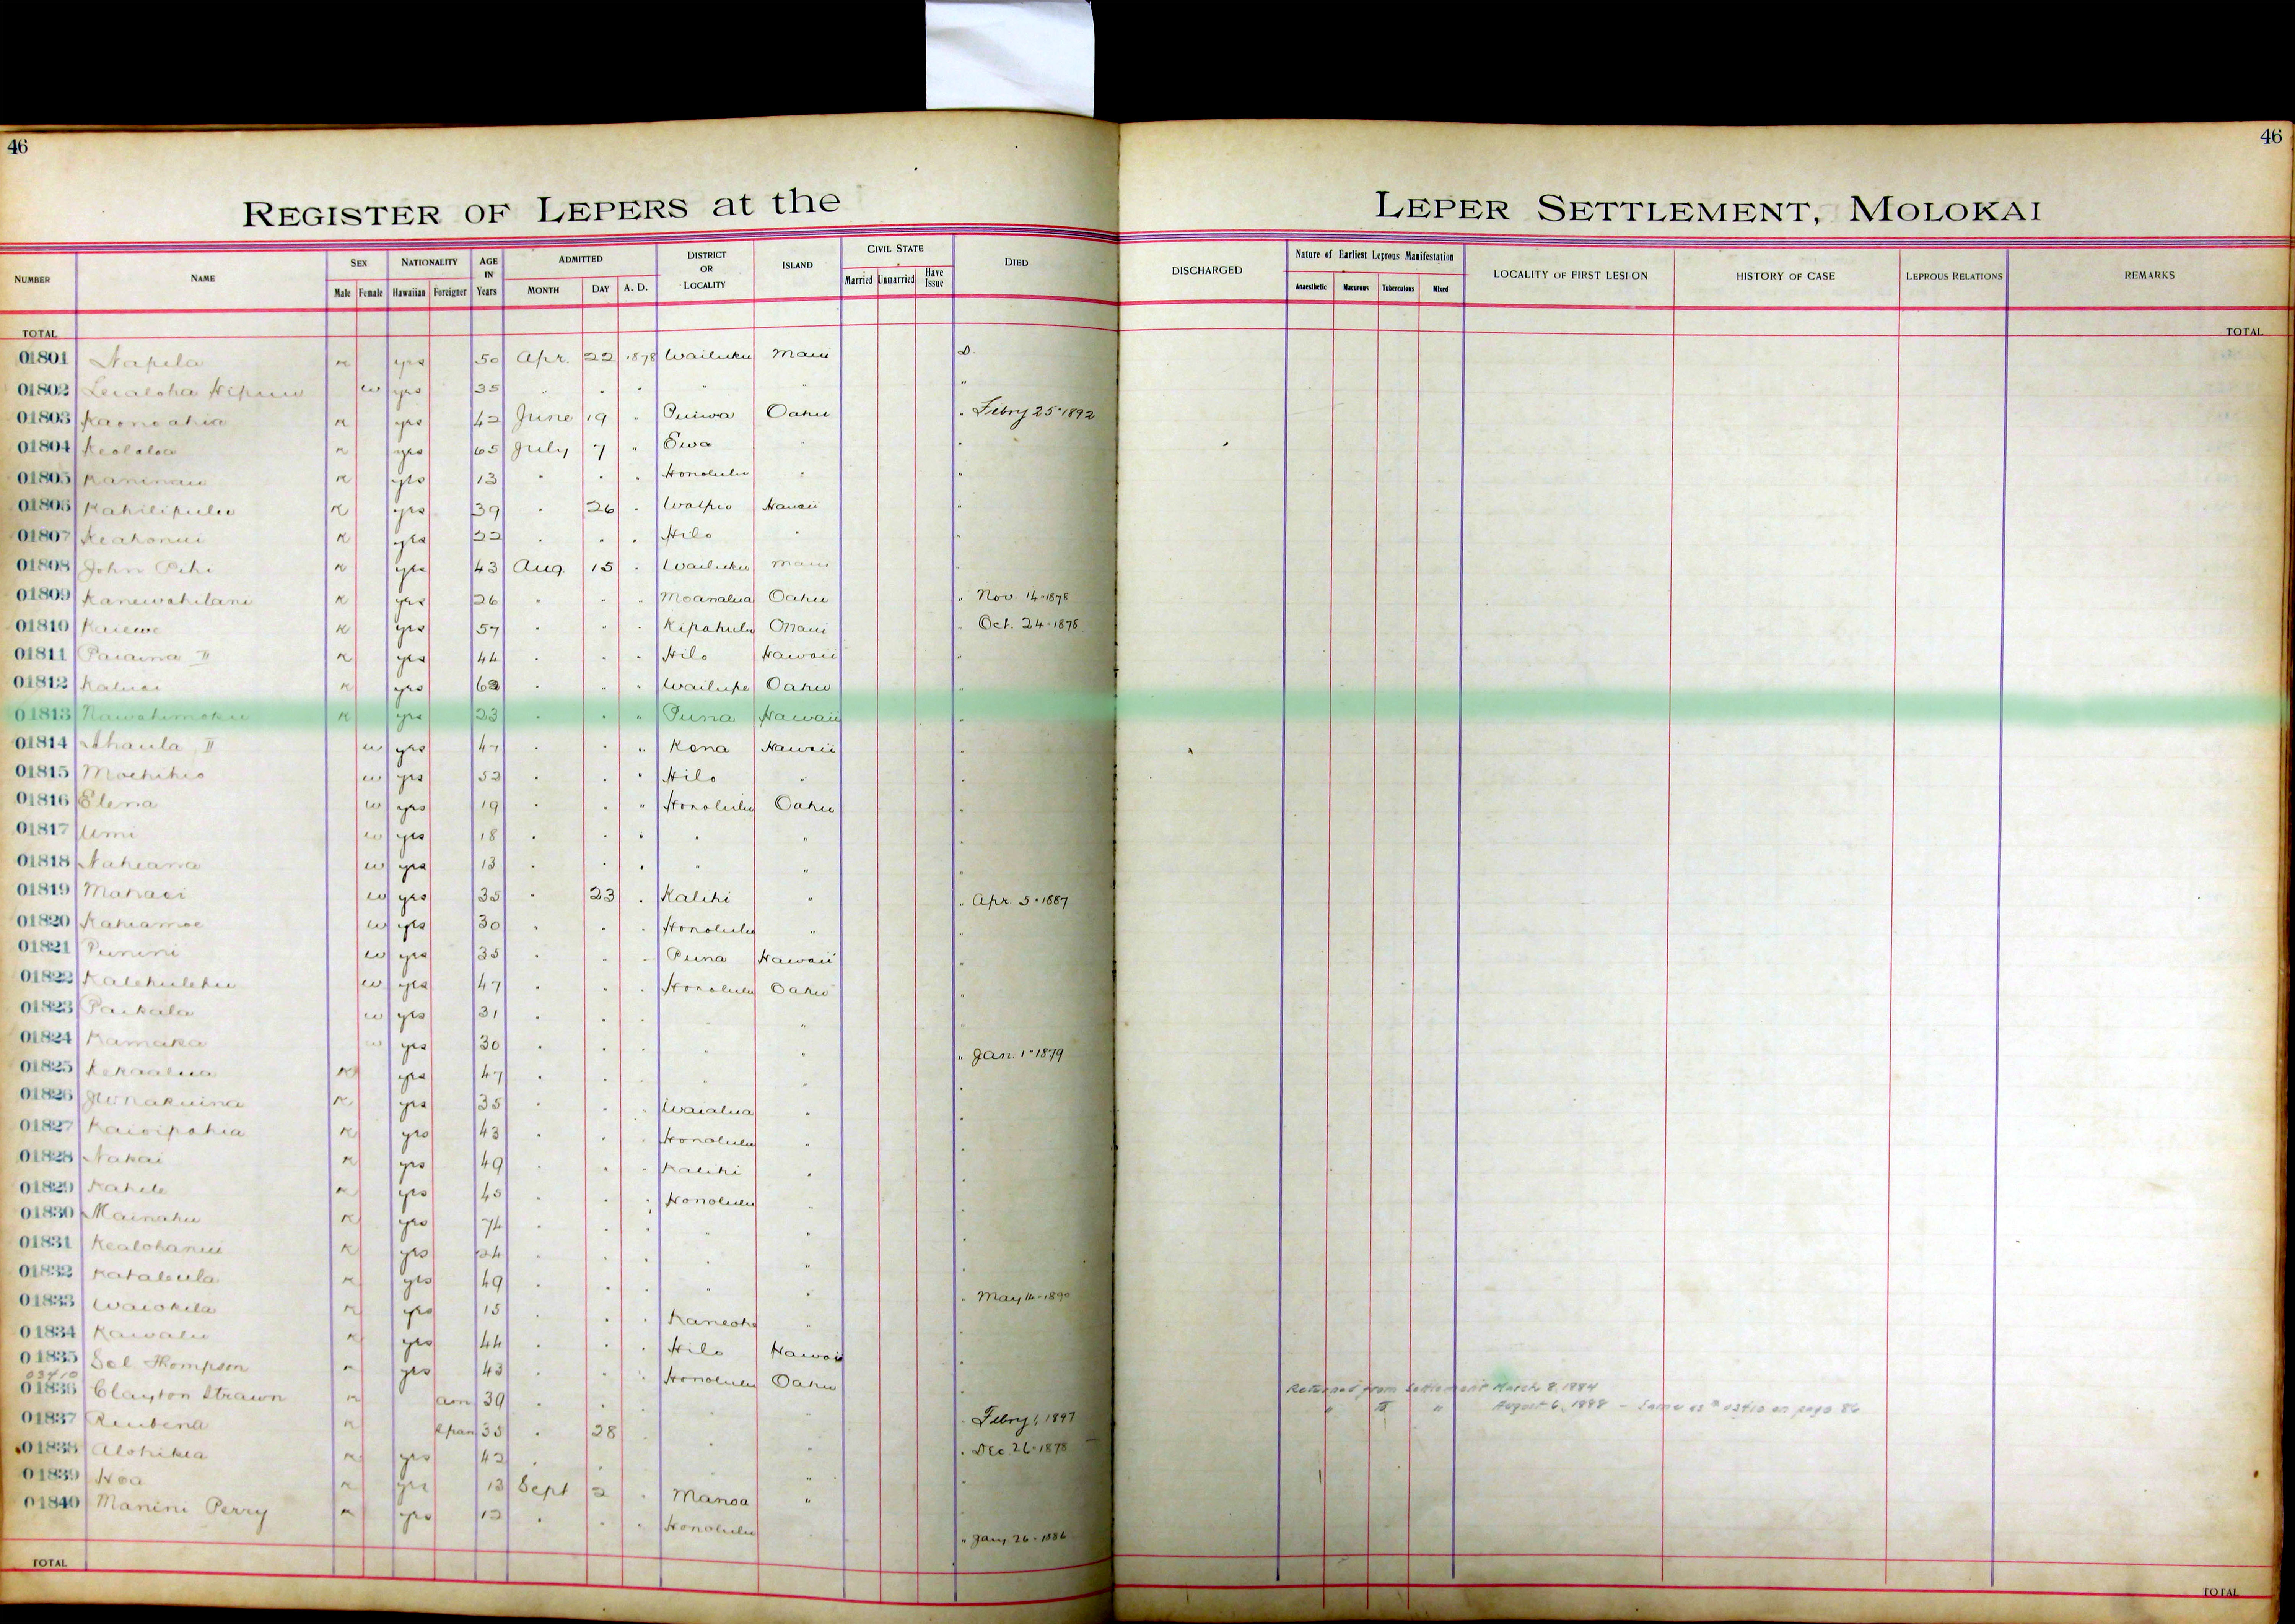 46
46
REGISTER OF LEPERS at the LEPER SETTLEMENT, MOLOKAI
NUMBER NAME SEX Male Female NATIONALITY Hawaiian Foreigner AGE IN Years ADMITTED MONTH DAY A. D. DISTRICT OR LOCALITY ISLAND CIVIL STATE Married Unmarried Have Issue DIED DISCHARGED Nature of Earliest Leprous Manifestation Anaesthetic Macurous Tuberculous Mixed LOCALITY OF FIRST LESION HISTORY OF CASE LEPROUS RELATIONS REMARKS
TOTAL TOTAL
01801 Napela m yes 50 Apr. 22 1878 Wailuku Maui D.
01802 Lealoha w yes 35 " " " " " "
01803 Kaonoahia m yes 42 June 19 " Puiwa Oahu " Febry 25-1892
01804 Keololoa m yes 65 July 7 " Ewa " "
01805 Kaninau m yes 13 " " " Honolulu " "
01806 Kahilipulu m yes 39 " 26 " Waipio Hawaii "
01807 Keahonui m yes 22 " " " Hilo " "
01808 John m yes 43 Aug. 15 " Wailuku Maui "
01809 Kanewahilani m yes 26 " " " Moanalua Oahu " Nov. 14-1878
01810 Kaiewe m yes 57 " " " Kipahulu Maui " Oct. 24-1878
01811 Paiaina II m yes 44 " " " Hilo Hawaii "
01812 Kaluai m yes 62 " " " Wailupe Oahu "
01813 Nawahimoku m yes 23 " " " Puna Hawaii "
01814 Ahaula II w yes 47 " " " Kona Hawaii "
01815 Moehikio w yes 52 " " " Hilo " "
01816 Elena w yes 19 " " " Honolulu Oahu "
01817 Umi w yes 18 " " " " " "
01818 Naheana w yes 13 " " " " " "
01819 Mahaei w yes 35 " 23 " Kalihi " " Apr. 5-1887
01820 Kahiamoe w yes 30 " " " Honolulu " "
01821 Punini w yes 35 " " " Puna Hawaii "
01822 Kalehulehu w yes 47 " " " Honolulu Oahu "
01823 Paikala w yes 31 " " " " "
01824 Kamaka w yes 30 " " " " " Jan. 1-1879
01825 Kekaalua m yes 47 " " " " "
01826 m yes 35 " " " Waialua " "
01827 Kaioipohia m yes 43 " " " Honolulu " "
01828 Nakai m yes 49 " " " Kalihi " "
01829 Kahele m yes 45 " " " Honolulu " "
01830 Mainahu m yes 74 " " " " "
01831 Kealohanui m yes 24 " " " " "
01832 Kahaleula m yes 49 " " " " " May 14-1890
01833 Waiohila m yes 15 " " " Kaneohe " "
01834 Kawalu m yes 44 " " " Hilo Hawaii "
01835 Sol Thompson m yes 43 " " " Honolulu Oahu "
03410
01836 Clayton Strawn m am 39 " " " Febry 1, 1897 Returned from Settlement March 8, 1884
" " " August 6, 1888 - Same as # 03410 on page 86
01837 Reubena m Span 35 " 28 " " " Dec 26-1878
01838 Alohikea m yes 42 " " " "
01839 Hoa m yes 13 Sept 2 " Manoa "
01840 Manini Perry m yes 12 " " " Honolulu " Jany 26-1886
TOTAL TOTAL